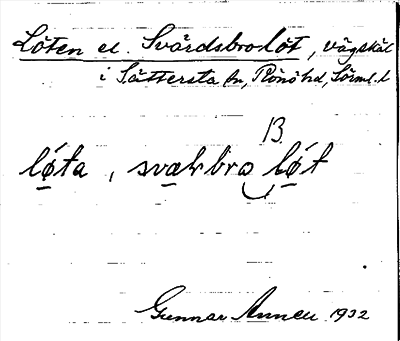 Löten el. Svärdsbrolöt, vägskäl
i Sättersta sn, Rönö hd, Sörml. l
B
lo̱ta, sva̱rbro lo̱t
Gunnar Anneu 1932